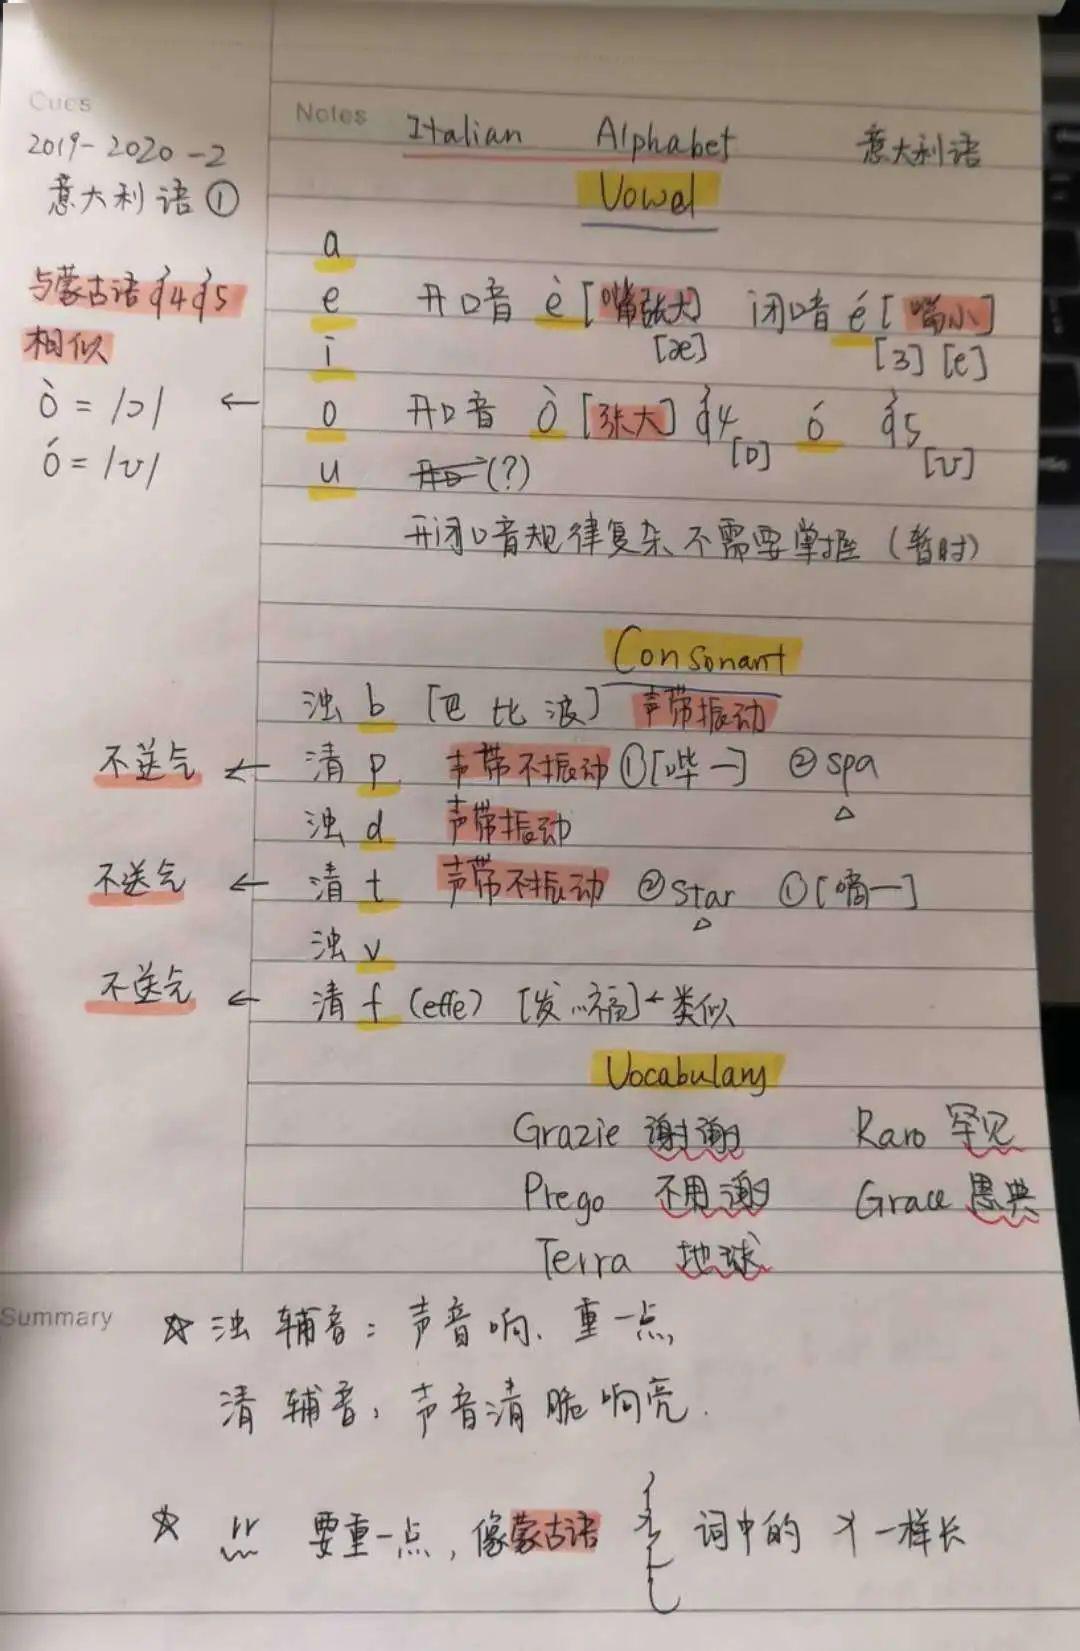 Cues
2019-2020-2
意大利语①
与蒙古语
相似
ò = /ɔ/
ó = /ʊ/
Notes
Italian Alphabet 意大利语
Vowel
a
e 开口音 è [嘴张大] 闭口音 é [嘴小]
[æ] [ɜ] [e]
i
o 开口音 ò [张大] ó
[ɒ] [ʊ]
u (?)
开闭口音规律复杂、不需要掌握（暂时）
Consonant
浊 b [巴 比 波] 声带振动
不送气 ← 清 p 声带不振动 ①[哔一] ②spa
浊 d 声带振动
不送气 ← 清 t 声带不振动 ②star ①[嘀一]
浊 v
不送气 ← 清 f (effe) [发 福] ← 类似
Vocabulary
Grazie 谢谢 Raro 罕见
Prego 不用谢 Grace 恩典
Terra 地球
Summary
☆ 浊 辅音：声音响、重一点,
清 辅音，声音清脆响亮.
☆ rr 要重一点，像蒙古语 词中的 一样长